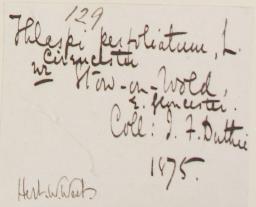 129
Thlaspi perfoliatum, L.
Cirencester
nr Stow-on-Wold,
E. Gloucester.
Coll: J. F. Duthie
1875.
Herb. W. West